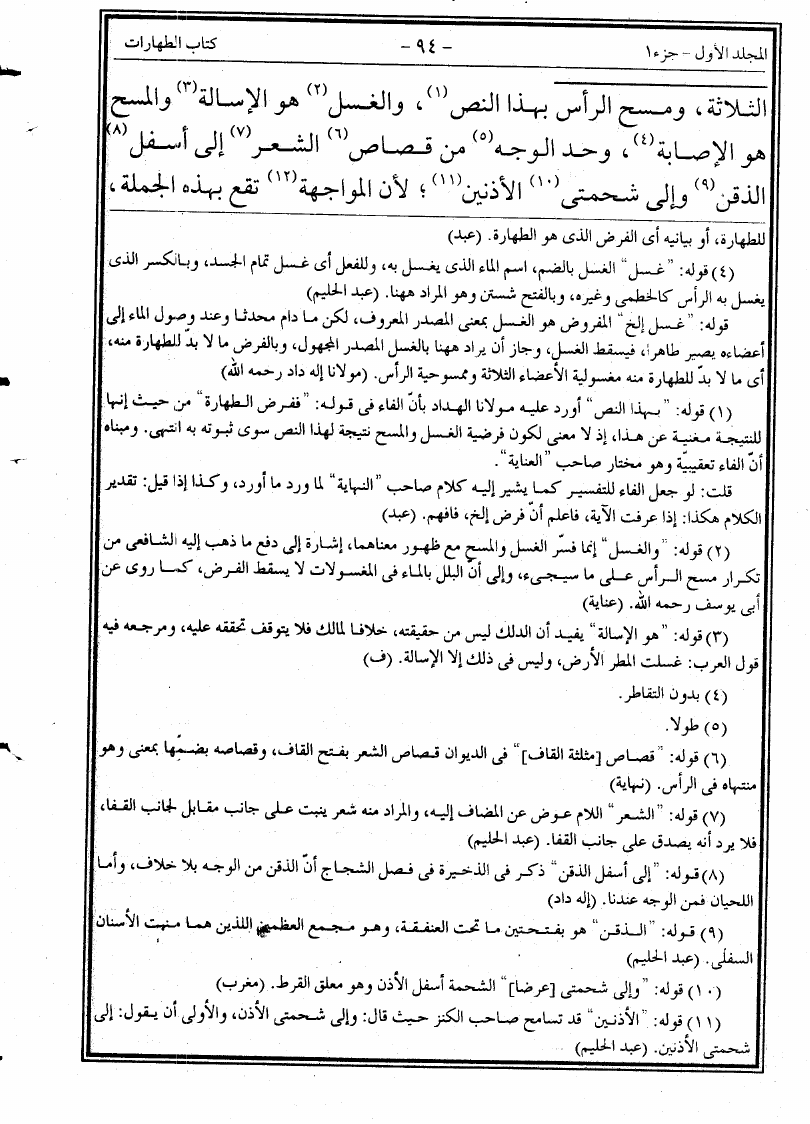 المجلد الأول - جزء ١ - ٩٤ - كتاب الطهارات
الثلاثة، ومسح الرأس بهذا النص(١)، والغسل(٢) هو الإسالة(٣) والمسح
هو الإصابة(٤)، وحد الوجه(٥) من قصاص(٦) الشعر(٧) إلى أسفل(٨)
الذقن(٩) وإلى شحمتى(١٠) الأذنين(١١)؛ لأن المواجهة(١٢) تقع بهذه الجملة،
للطهارة، أو بيانيه أى الفرض الذى هو الطهارة. (عبد)
(٤) قوله: "غسل" الغسل بالضم، اسم الماء الذى يغسل به، وللفعل أى غسل تمام الجسد، وبالكسر الذى
يغسل به الرأس كالخطمى وغيره، وبالفتح شستن وهو المراد ههنا. (عبد الحليم)
قوله: "غسل إلخ" المفروض هو الغسل بمعنى المصدر المعروف، لكن ما دام محدثا وعند وصول الماء إلى
أعضاءه يصير طاهرا، فيسقط الغسل، وجاز أن يراد ههنا بالغسل المصدر المجهول، وبالفرض ما لا بدّ للطهارة منه،
أى ما لا بدّ للطهارة منه مغسولية الأعضاء الثلاثة وممسوحية الرأس. (مولانا إله داد رحمه الله)
(١) قوله: "بهذا النص" أورد عليه مولانا الهداد بأنّ الفاء فى قوله: "ففرض الطهارة" من حيث إنها
للنتيجة مغنية عن هذا، إذ لا معنى لكون فرضية الغسل والمسح نتيجة لهذا النص سوى ثبوته به انتهى. ومبناه
أنّ الفاء تعقيبيّة وهو مختار صاحب "العناية".
قلت: لو جعل الفاء للتفسير كما يشير إليه كلام صاحب "النهاية" لما ورد ما أورد، وكذا إذا قيل: تقدير
الكلام هكذا: إذا عرفت الآية، فاعلم أنّ فرض إلخ، فافهم. (عبد)
(٢) قوله: "والغسل" إنما فسّر الغسل والمسح مع ظهور معناهما، إشارة إلى دفع ما ذهب إليه الشافعى من
تكرار مسح الرأس على ما سيجىء، وإلى أنّ البلل بالماء فى المغسولات لا يسقط الفرض، كما روى عن
أبى يوسف رحمه الله. (عناية)
(٣) قوله: "هو الإسالة" يفيد أن الدلك ليس من حقيقته، خلافا لمالك فلا يتوقف تحققه عليه، ومرجعه فيه
قول العرب: غسلت المطر الأرض، وليس فى ذلك إلا الإسالة. (ف)
(٤) بدون التقاطر.
(٥) طولا.
(٦) قوله: "قصاص [مثلثة القاف]" فى الديوان قصاص الشعر بفتح القاف، وقصاصه بضمّها بمعنى وهو
منتهاه فى الرأس. (نهاية)
(٧) قوله: "الشعر" اللام عوض عن المضاف إليه، والمراد منه شعر ينبت على جانب مقابل لجانب القفا،
فلا يرد أنه يصدق على جانب القفا. (عبد الحليم)
(٨) قوله: "إلى أسفل الذقن" ذكر فى الذخيرة فى فصل الشجاج أنّ الذقن من الوجه بلا خلاف، وأما
اللحيان فمن الوجه عندنا. (إله داد)
(٩) قوله: "الذقن" هو بفتحتين ما تحت العنفقة، وهو مجمع العظمين اللذين هما منبت الأسنان
السفلى. (عبد الحليم)
(١٠) قوله: "وإلى شحمتى [عرضا]" الشحمة أسفل الأذن وهو معلق القرط. (مغرب)
(١١) قوله: "الأذنين" قد تسامح صاحب الكنز حيث قال: وإلى شحمتى الأذن، والأولى أن يقول: إلى
شحمتى الأذنين. (عبد الحليم)